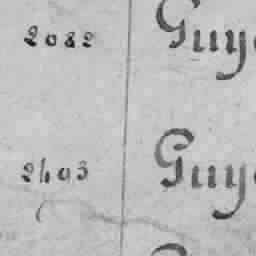 2082 Guy
2403 Guy